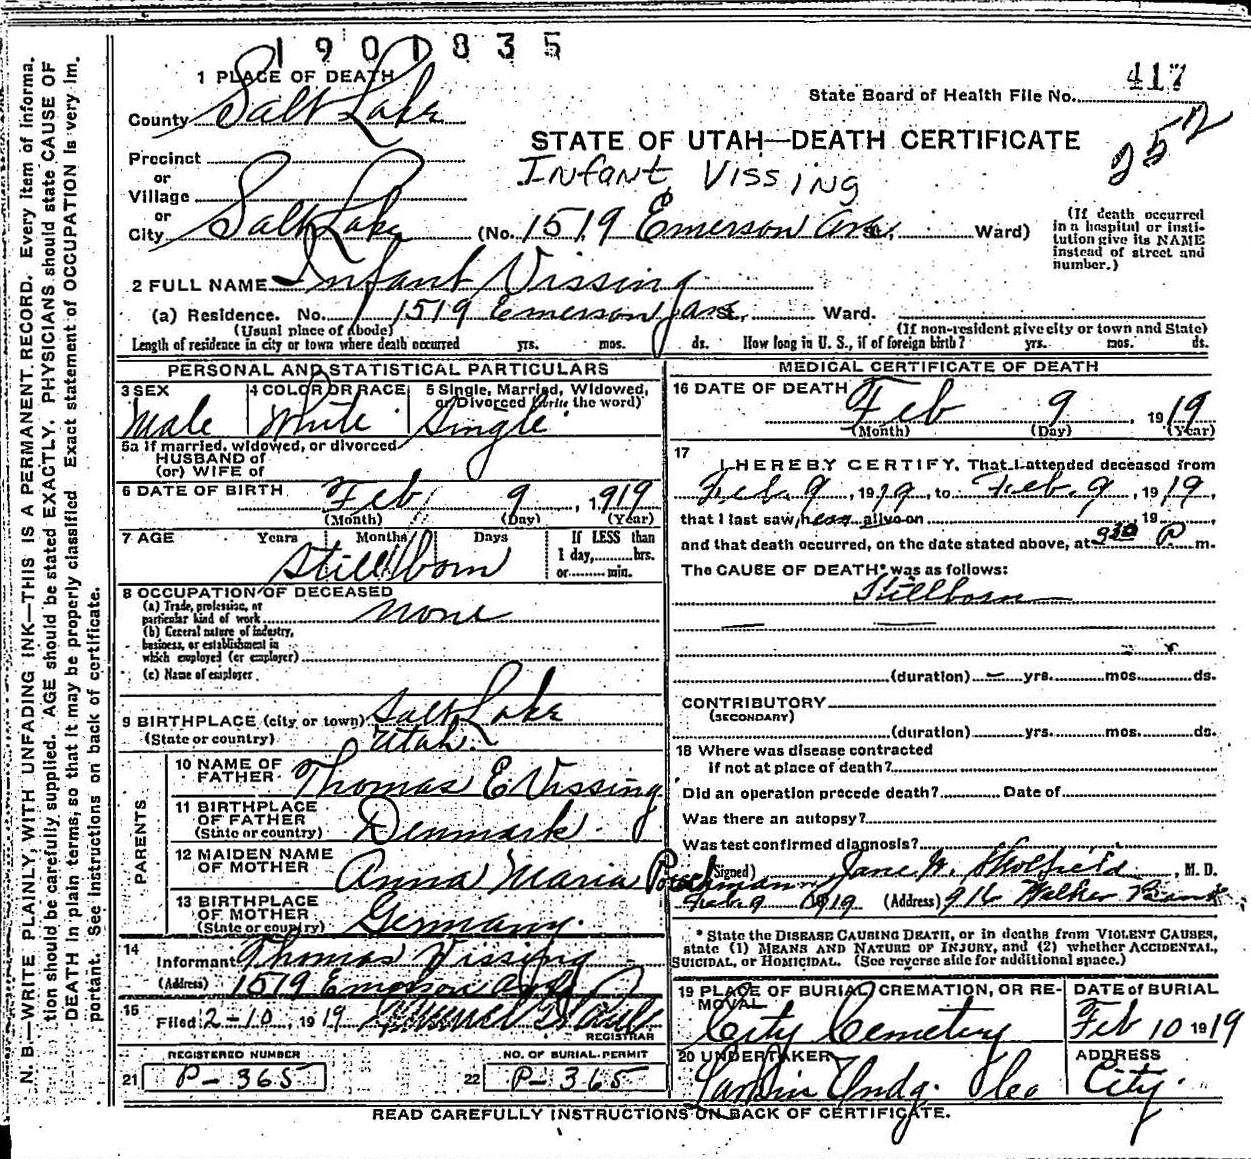 1901835
1 PLACE OF DEATH
417
State Board of Health File No.
County Salt Lake
STATE OF UTAH—DEATH CERTIFICATE
252
Precinct
or
Village
Infant Vissing
or
City Salt Lake (No. 1519 Emerson Ave, Ward)
(If death occurred in a hospital or insti-
tution give its NAME instead of street and number.)
2 FULL NAME Infant Vissing
(a) Residence. No. 1519 Emerson Ave St., Ward.
(Usual place of abode) (If non-resident give city or town and State)
Length of residence in city or town where death occurred yrs. mos. ds. How long in U. S., if of foreign birth? yrs. mos. ds.
PERSONAL AND STATISTICAL PARTICULARS
3 SEX Male
4 COLOR OR RACE White
5 Single, Married, Widowed, or Divorced (write the word) Single
5a If married, widowed, or divorced
HUSBAND of
(or) WIFE of
6 DATE OF BIRTH Feb 9, 1919
(Month) (Day) (Year)
7 AGE Years Months Days If LESS than
1 day, hrs.
or min.
Stillborn
8 OCCUPATION OF DECEASED
(a) Trade, profession, or
particular kind of work none
(b) General nature of industry,
business, or establishment in
which employed (or employer)
(c) Name of employer
9 BIRTHPLACE (city or town) Salt Lake
(State or country) Utah.
PARENTS
10 NAME OF FATHER Thomas E Vissing
11 BIRTHPLACE OF FATHER
(State or country) Denmark.
12 MAIDEN NAME OF MOTHER Anna Maria
13 BIRTHPLACE OF MOTHER
(State or country) Germany.
14 Informant Thomas Vissing
(Address) 1519 Emerson Ave
15 Filed 2-10, 1919
REGISTRAR
REGISTERED NUMBER
21 P-365
NO. OF BURIAL PERMIT
22 P-365
MEDICAL CERTIFICATE OF DEATH
16 DATE OF DEATH Feb 9, 1919
(Month) (Day) (Year)
17
I HEREBY CERTIFY, That I attended deceased from
Feb. 9, 1919, to Feb. 9, 1919,
that I last saw h alive on , 19 ,
and that death occurred, on the date stated above, at 930 P m.
The CAUSE OF DEATH* was as follows:
Stillborn
(duration) yrs. mos. ds.
CONTRIBUTORY
(SECONDARY)
(duration) yrs. mos. ds.
18 Where was disease contracted
if not at place of death?
Did an operation precede death? Date of
Was there an autopsy?
Was test confirmed diagnosis?
(Signed) Jane W. Skolfield, M. D.
Feb 9 1919 (Address) 916 Walker Bank
* State the DISEASE CAUSING DEATH, or in deaths from VIOLENT CAUSES,
state (1) MEANS AND NATURE OF INJURY, and (2) whether ACCIDENTAL,
SUICIDAL, or HOMICIDAL. (See reverse side for additional space.)
19 PLACE OF BURIAL, CREMATION, OR RE-
MOVAL
City Cemetery
DATE of BURIAL
Feb 10 1919
20 UNDERTAKER
Larkin Undg.
ADDRESS
City.
READ CAREFULLY INSTRUCTIONS ON BACK OF CERTIFICATE.
N. B.—WRITE PLAINLY, WITH UNFADING INK—THIS IS A PERMANENT RECORD. Every item of informa-
tion should be carefully supplied. AGE should be stated EXACTLY. PHYSICIANS should state CAUSE OF
DEATH in plain terms, so that it may be properly classified. Exact statement of OCCUPATION is very im-
portant. See instructions on back of certificate.